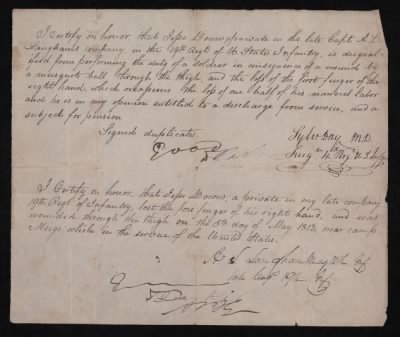 I Certify on honor that Jesse Downs a private in the late Capt. A. L.
Langhams company in the 19th Regt of U. States Infantry, is disqual-
ified from performing the duty of a soldier in consequence of a wound by
a musquet ball through the thigh and the loss of the fore finger of the
right hand, which occasions the loss of one half of his manual labor
and he is in my opinion entitled to a discharge from service, and a
subject for pension
Signed duplicate.
Sylvr Day M.D.
Good
Surg. 4th Regt U.S. Infy
I Certify on honor, that Jesse Downs, a private in my late company
19th Regt of Infantry, lost the fore finger of his right hand, and was
wounded through the thigh on the 5th day of May 1813, near camp
Meigs, while in the service of the United States.
A L Langham
late Capt 19th Inf